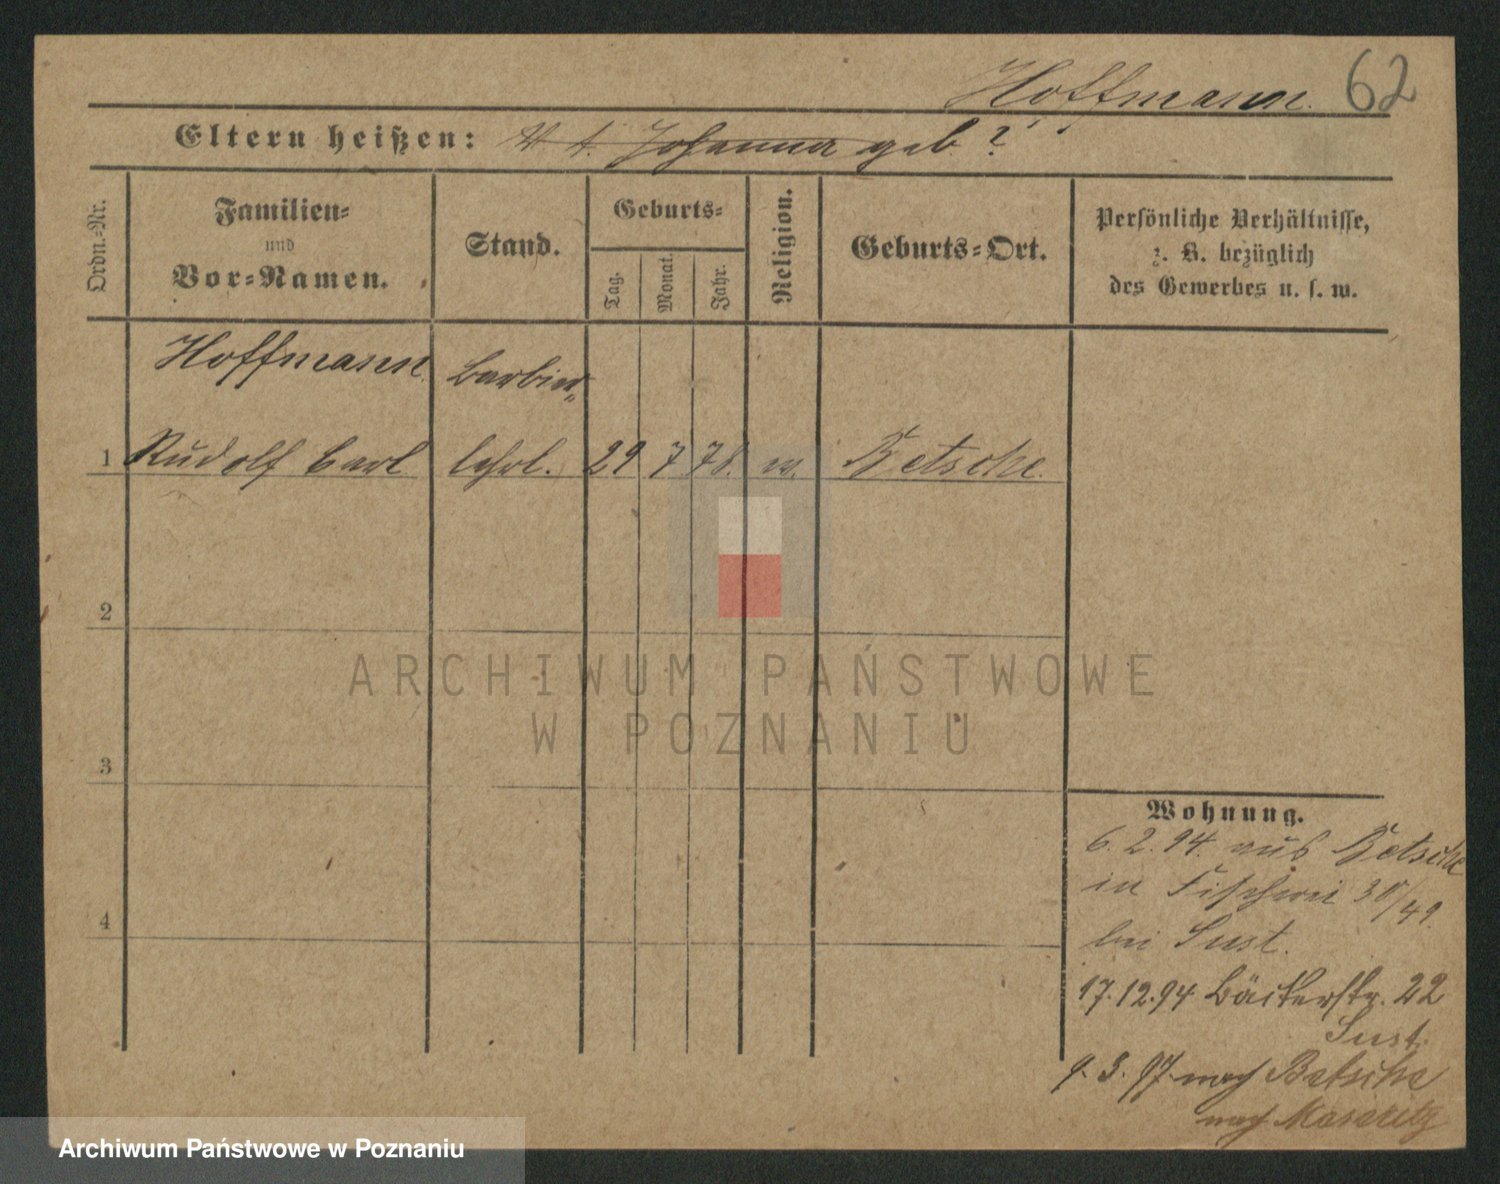 Hoffmann. 62
Eltern heißen: Johanna geb?
Ordn.-Nr.
Familien-
und
Vor-Namen.
Stand.
Geburts-
Tag.
Monat.
Jahr.
Religion.
Geburts-Ort.
Persönliche Verhältnisse,
z. B. bezüglich
des Gewerbes u. s. w.
Hoffmann Barbier„
1 Rudolf Carl lehrl. 29 7 78. ev. Betsche.
2
3
4
Wohnung.
6. 2. 94. aus Betsche
in Fischerei 30/49.
bei Sust.
17.12.94 Bäckerstr. 22
Sust.
9. 3. 97 nach Betsche
nach Meseritz
ARCHIWUM PAŃSTWOWE
W POZNANIU
Archiwum Państwowe w Poznaniu